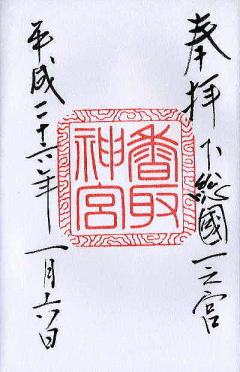 奉拝 下総國一之宮
香取
神宮
平成二十六年一月六日